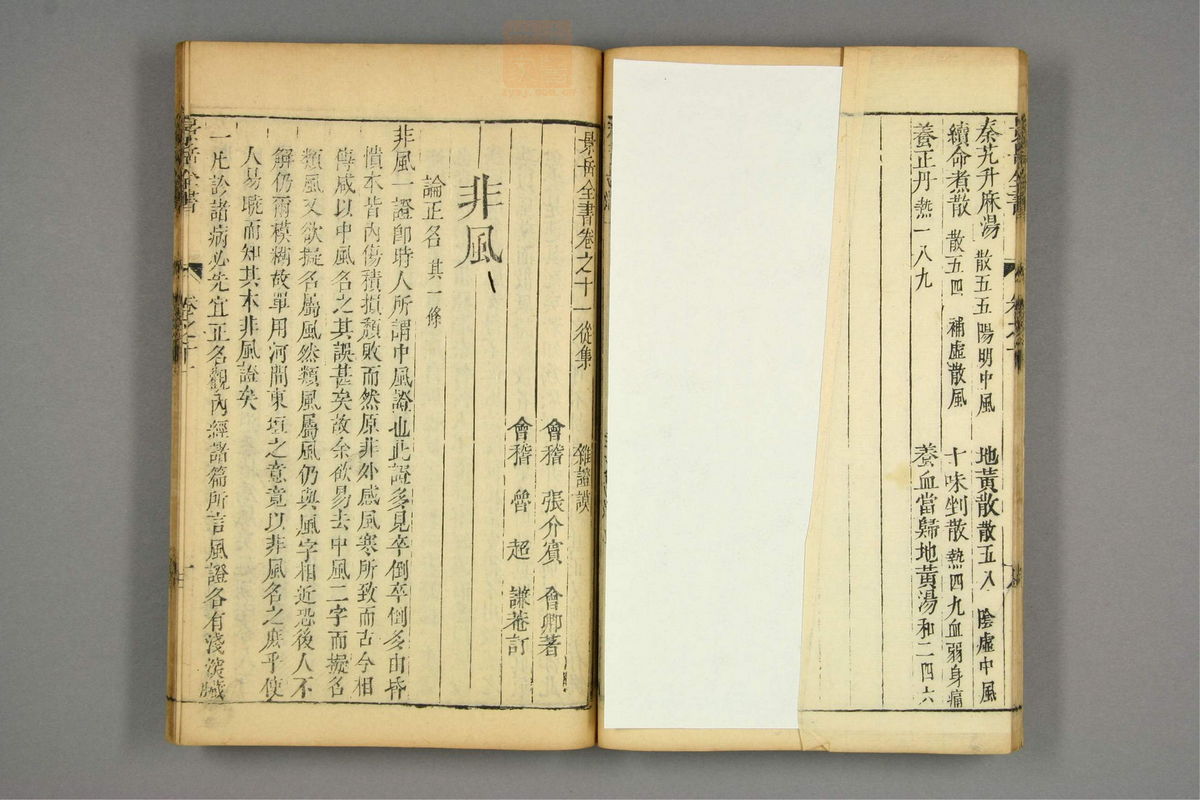 秦艽升麻湯 散五五 陽明中風 地黃散 散五八 陰虛中風
續命煮散 散五四 補虛散風 十味剉散 熱四九 血弱身痛
養正丹 熱一八九 養血當歸地黃湯 和二四六
景岳全書卷之十一 從集 雜證謨
會稽 張介賓 會卿著
會稽 魯 超 謙菴訂
非風
論正名 其一條
非風一證卽時人所謂中風證也此證多見卒倒卒倒多由昏
憒本皆內傷積損頹敗而然原非外感風寒所致而古今相
傳咸以中風名之其誤甚矣故余欲易去中風二字而擬名
類風又欲擬名屬風然類風屬風仍與風字相近恐後人不
解仍爾模糊故單用河間東垣之意竟以非風名之庶乎使
人易曉而知其本非風證矣
一凡診諸病必先宜正名觀內經諸篇所言風證各有淺深臟
景岳全書
卷之十一
一